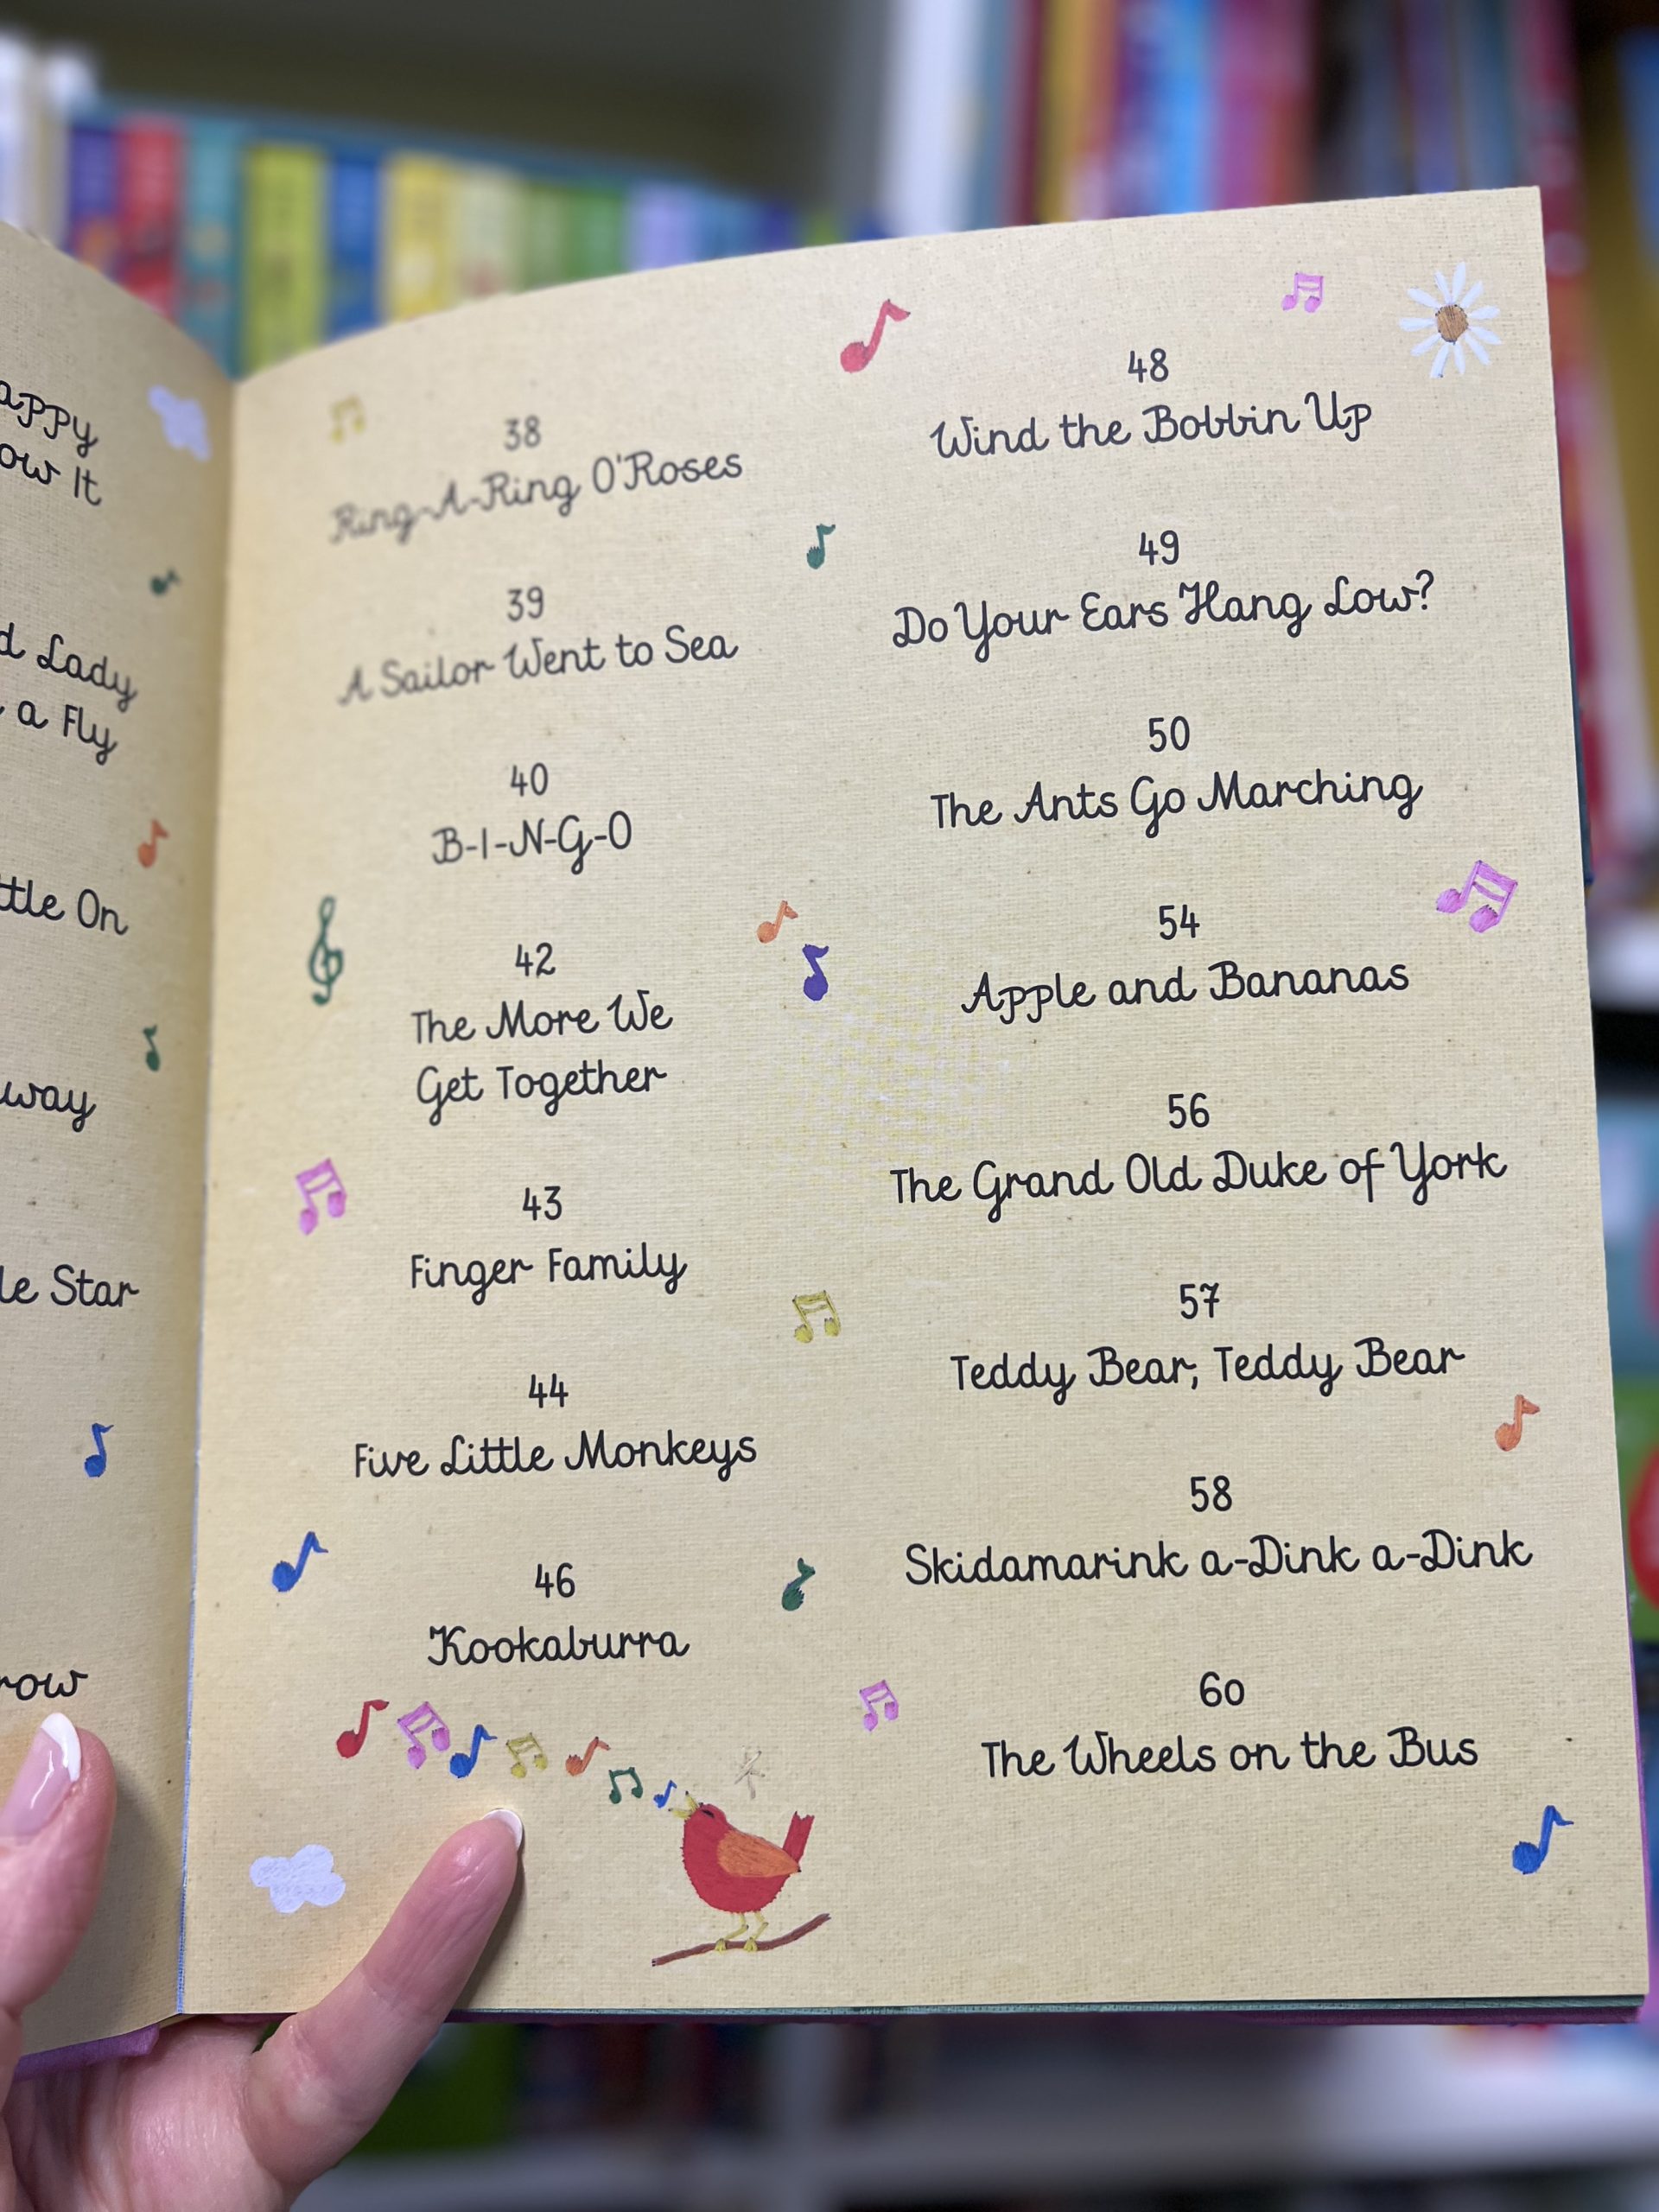 appy
ow It
d Lady
a Fly
ttle On
way
le Star
row
38
Ring-A-Ring O'Roses
39
A Sailor Went to Sea
40
B-I-N-G-O
42
The More We
Get Together
43
Finger Family
44
Five Little Monkeys
46
Kookaburra
48
Wind the Bobbin Up
49
Do Your Ears Hang Low?
50
The Ants Go Marching
54
Apple and Bananas
56
The Grand Old Duke of York
57
Teddy Bear, Teddy Bear
58
Skidamarink a-Dink a-Dink
60
The Wheels on the Bus